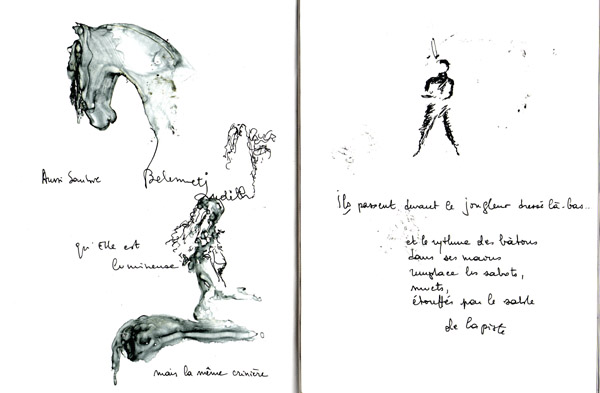 Aussi sombre Belemnety
Judith
qu'Elle est
lumineuse
mais la même crinière
Ils passent devant le jongleur dressé là-bas..
et le rythme des bâtons
dans ses mains
remplace les sabots,
muets,
étouffés par le sable
de la piste